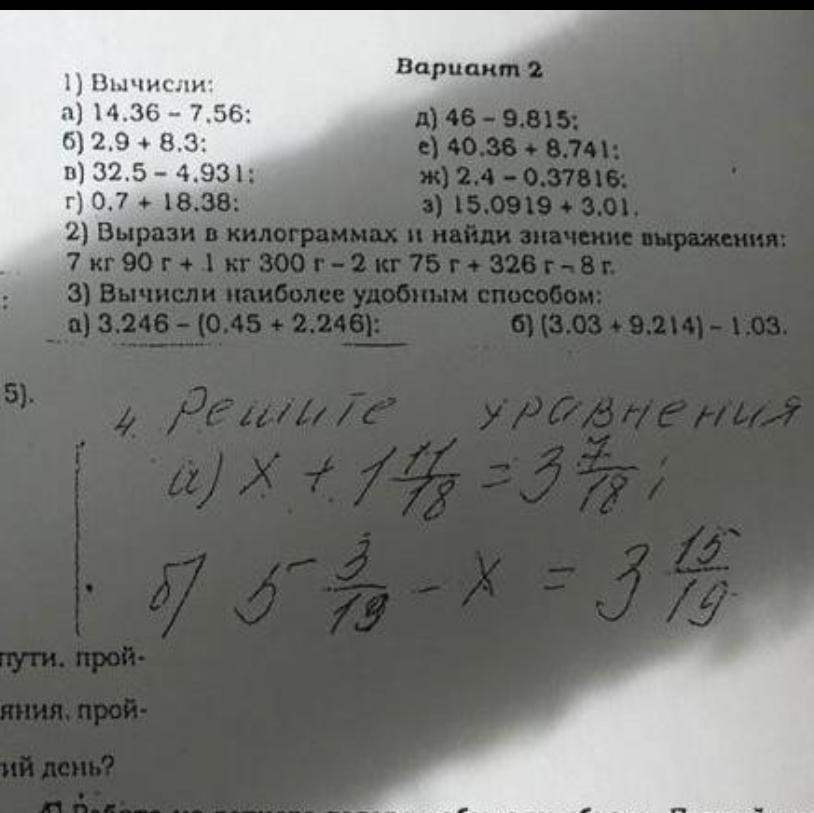 Вариант 2
1) Вычисли:
а) 14.36 – 7.56; д) 46 – 9.815;
б) 2.9 + 8.3; е) 40.36 + 8.741;
в) 32.5 – 4.931; ж) 2.4 – 0.37816;
г) 0.7 + 18.38; з) 15.0919 + 3.01.
2) Вырази в килограммах и найди значение выражения:
7 кг 90 г + 1 кг 300 г – 2 кг 75 г + 326 г – 8 г.
3) Вычисли наиболее удобным способом:
а) 3.246 – (0.45 + 2.246); б) (3.03 + 9.214) – 1.03.
5).
4. Решите уравнения
а) x + 1 11/18 = 3 7/18;
б) 5 3/19 – x = 3 15/19
пути, прой-
яния, прой-
ий день?